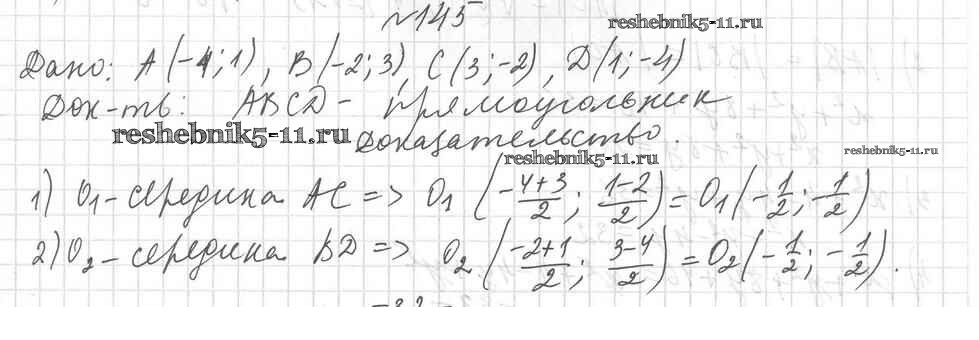 №145
reshebnik5-11.ru
Дано: A(-4;1), B(-2;3), C(3;-2), D(1;-4)
Док-ть: ABCD - прямоугольник
reshebnik5-11.ru
Доказательство.
reshebnik5-11.ru
reshebnik5-11.ru
1) O₁-середина AC => O₁ (\frac{-4+3}{2}; \frac{1-2}{2}) = O₁(-\frac{1}{2}; -\frac{1}{2})
2) O₂-середина BD => O₂ (\frac{-2+1}{2}; \frac{3-4}{2}) = O₂(-\frac{1}{2}; -\frac{1}{2}).